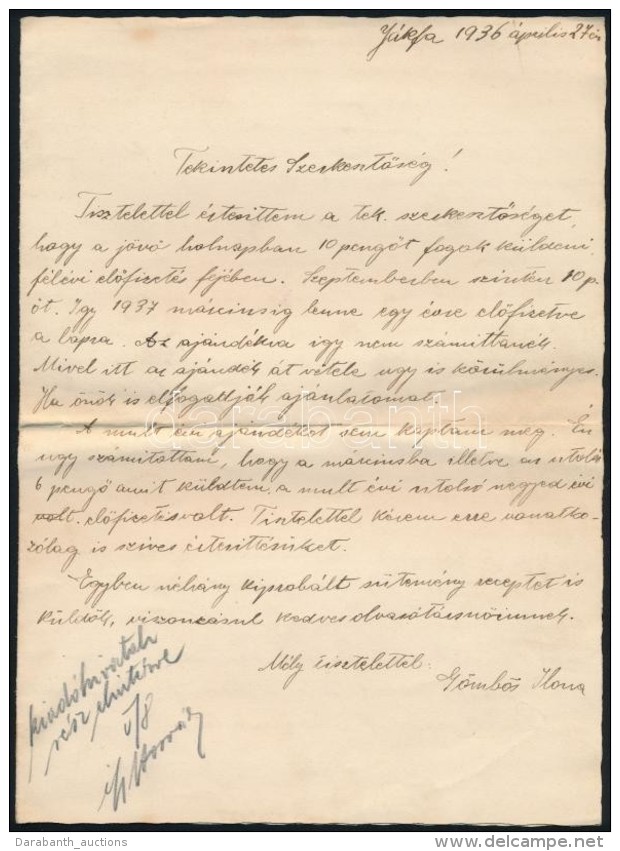 Jákfa 1936 április 27én
Tekintetes Szerkesztőség!
Tisztelettel értesittem a tek. szerkesztőséget,
hogy a jövő holnapban 10 pengőt fogok küldeni,
félévi előfizetés fijében. Szeptemberben szintén 10 p.
őt. Igy 1937 márciusig lenne egy évre előfizetve
a lapra. Az ajándékra igy nem számittanék.
Mivel itt az ajándék át vétele ugy is körülményes.
Ha önök is elfogadják ajánlatomat.
A mult évi ajándékot sem kaptam meg. Én
ugy számitottam, hogy a márciusba illetve az utolsó
6 pengő amit küldtem, a mult évi utolsó negyed évi
volt. előfizetés volt. Tisztelettel kérem erre vonatko-
zólag is szives értesittésüket.
Egyben néhány kipróbált sütemény receptet is
küldök, viszonzásul kedves olvasótársnőimnek.
Mély tisztelettel:
Gömbös Ilona
kiadóhivatali
rész elintézve
V/8
darabanth
Darabanth_auctions
delcampe.net